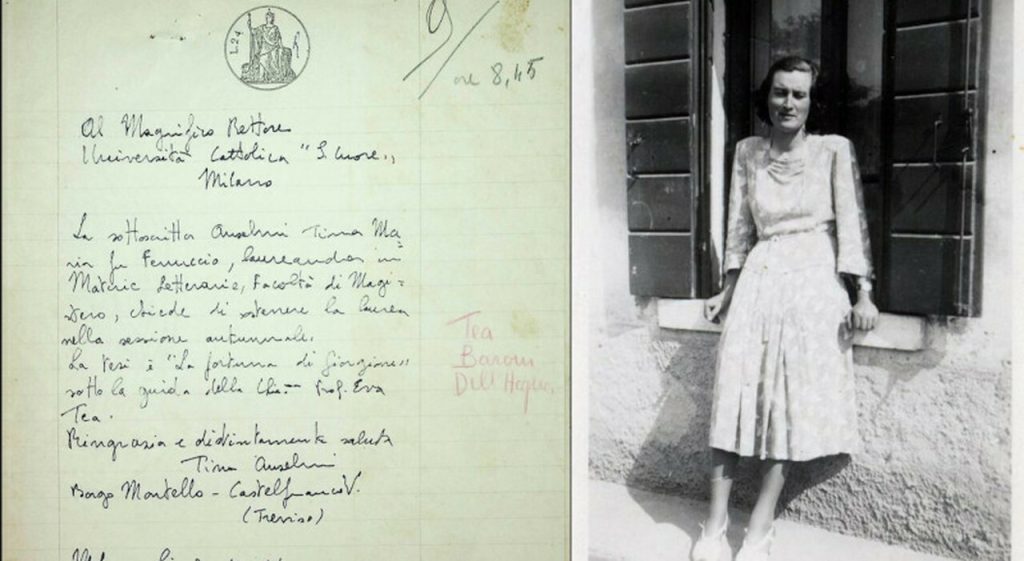 L. 24
9
ore 8,45
Al Magnifico Rettore
Università Cattolica "S. Cuore„
Milano
La sottoscritta Anselmi Tina Ma=
ria fu Ferruccio, laureanda in
Materie Letterarie, Facoltà di Magi=
stero, chiede di sostenere la laurea
nella sessione autunnale.
La tesi è "La fortuna di Giorgione„
sotto la guida della Prof. Eva
Tea.
Ringrazia e distintamente saluta
Tina Anselmi
Borgo Montello - Castelfranco V.
(Treviso)
Tea
Baroni
Dell'